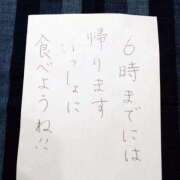 6時までには
帰ります
いっしょに
食べようね!!